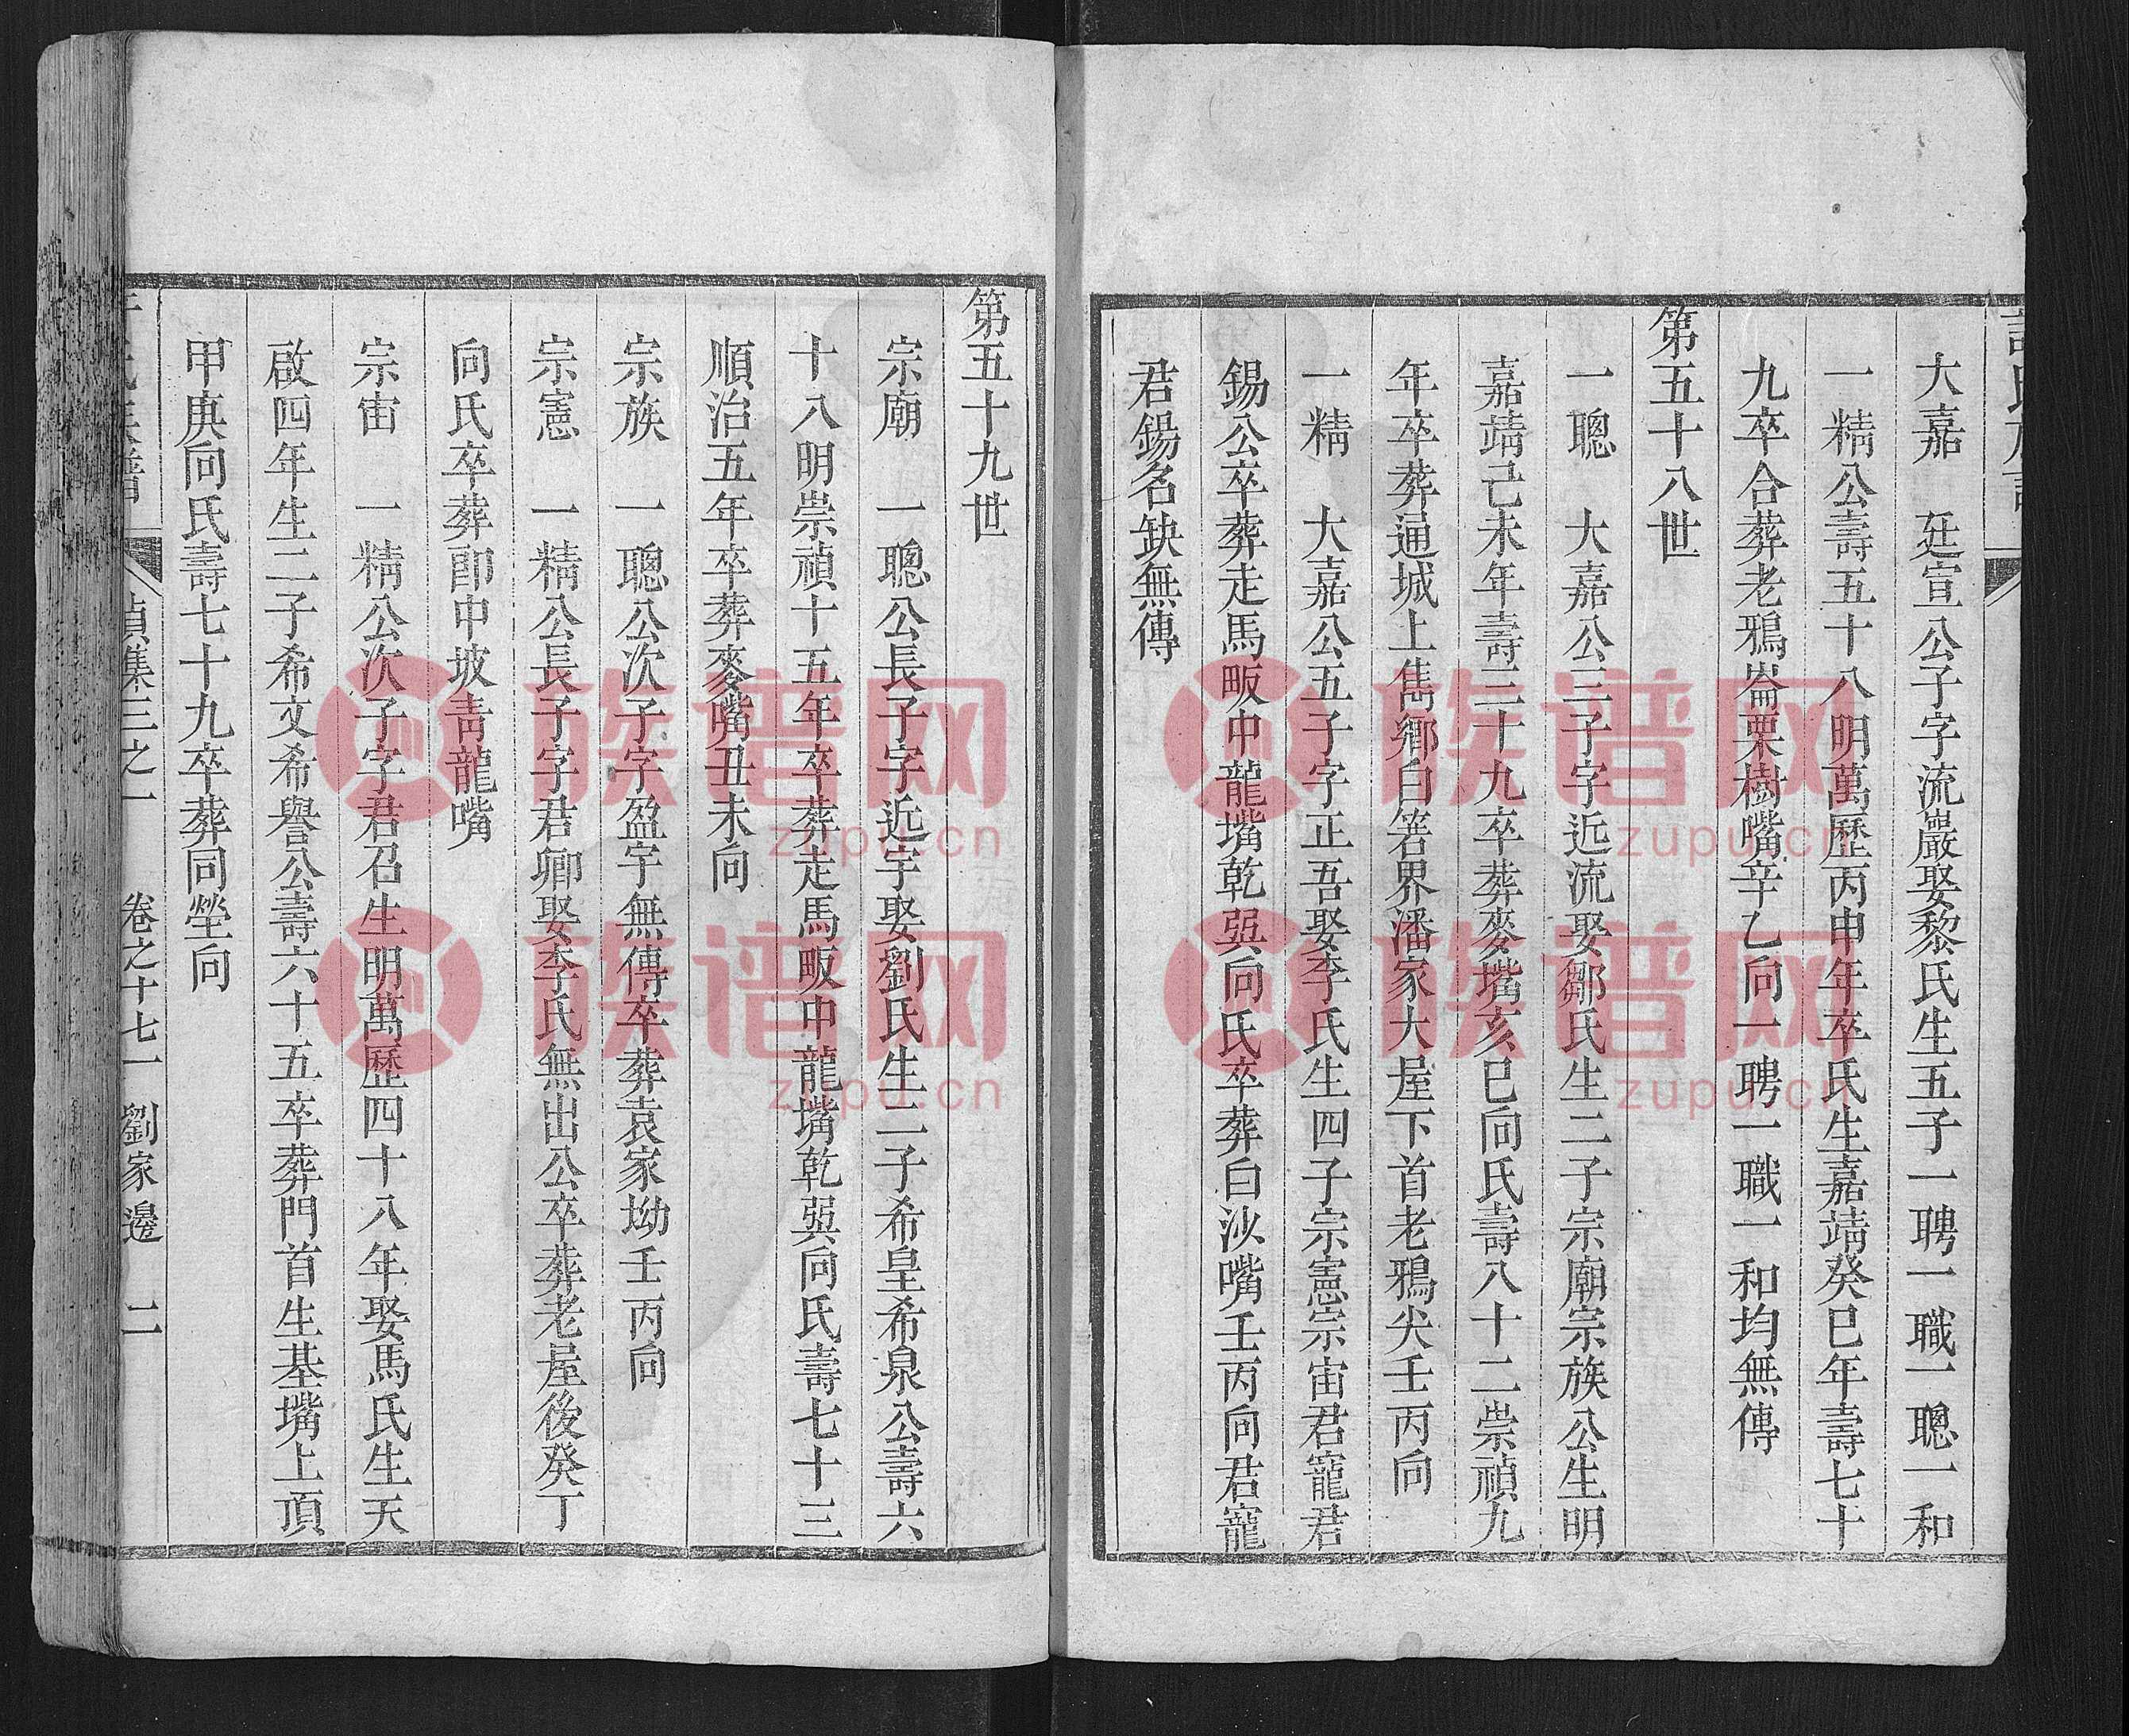 氏族譜
大嘉　廷宣公子字流巖娶黎氏生五子一聘一職一聰一和
一精公壽五十八明萬歷丙申年卒氏生嘉靖癸巳年壽七十
九卒合葬老鴉崙栗樹嘴辛乙向一聘一職一和均無傳
第五十八世
一聰　大嘉公三子字近流娶鄒氏生二子宗廟宗族公生明
嘉靖己未年壽三十九卒葬麥嘴亥巳向氏壽八十二崇禎九
年卒葬通城上雋鄉白箬界潘家大屋下首老鴉尖壬丙向
一精　大嘉公五子字正吾娶李氏生四子宗憲宗宙君寵君
錫公卒葬走馬畈中龍嘴乾巽向氏卒葬白沙嘴壬丙向君寵
君錫名缺無傳
第五十九世
宗廟　一聰公長子字近宇娶劉氏生二子希皇希泉公壽六
十八明崇禎十五年卒葬走馬畈中龍嘴乾巽向氏壽七十三
順治五年卒葬麥嘴丑未向
宗族　一聰公次子字盈宇無傳卒葬袁家坳壬丙向
宗憲　一精公長子字君卿娶李氏無出公卒葬老屋後癸丁
向氏卒葬郎中坡青龍嘴
宗宙　一精公次子字君召生明萬歷四十八年娶馬氏生天
啟四年生二子希文希譽公壽六十五卒葬門首生基嘴上頂
甲庚向氏壽七十九卒葬同塋向
氏族譜　貞集三之一　卷之十七一　劉家邊　二
族谱网
zupu.cn
族谱网
zupu.cn
族谱网
zupu.cn
族谱网
zupu.cn